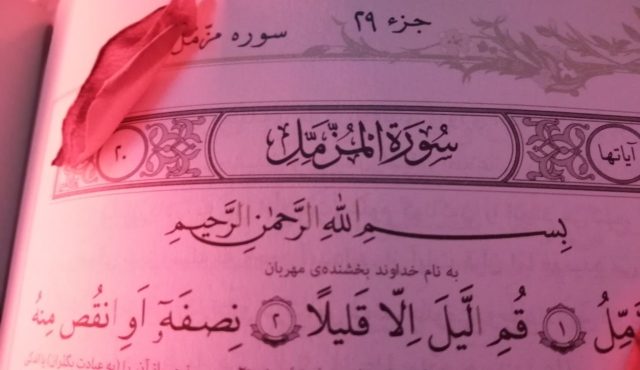 جزء ۲۹
سوره مزّمل
آیاتها
سُورَةُ الْمُزَّمِّلِ
۲۰
بِسمِ اللهِ الرَّحمٰنِ الرَّحیمِ
به نام خداوند بخشنده‌ی مهربان
۱ قُمِ الَّیلَ اِلّا قَلیلًا ۲ نِصفَهٗ اَوِ انقُص مِنهُ